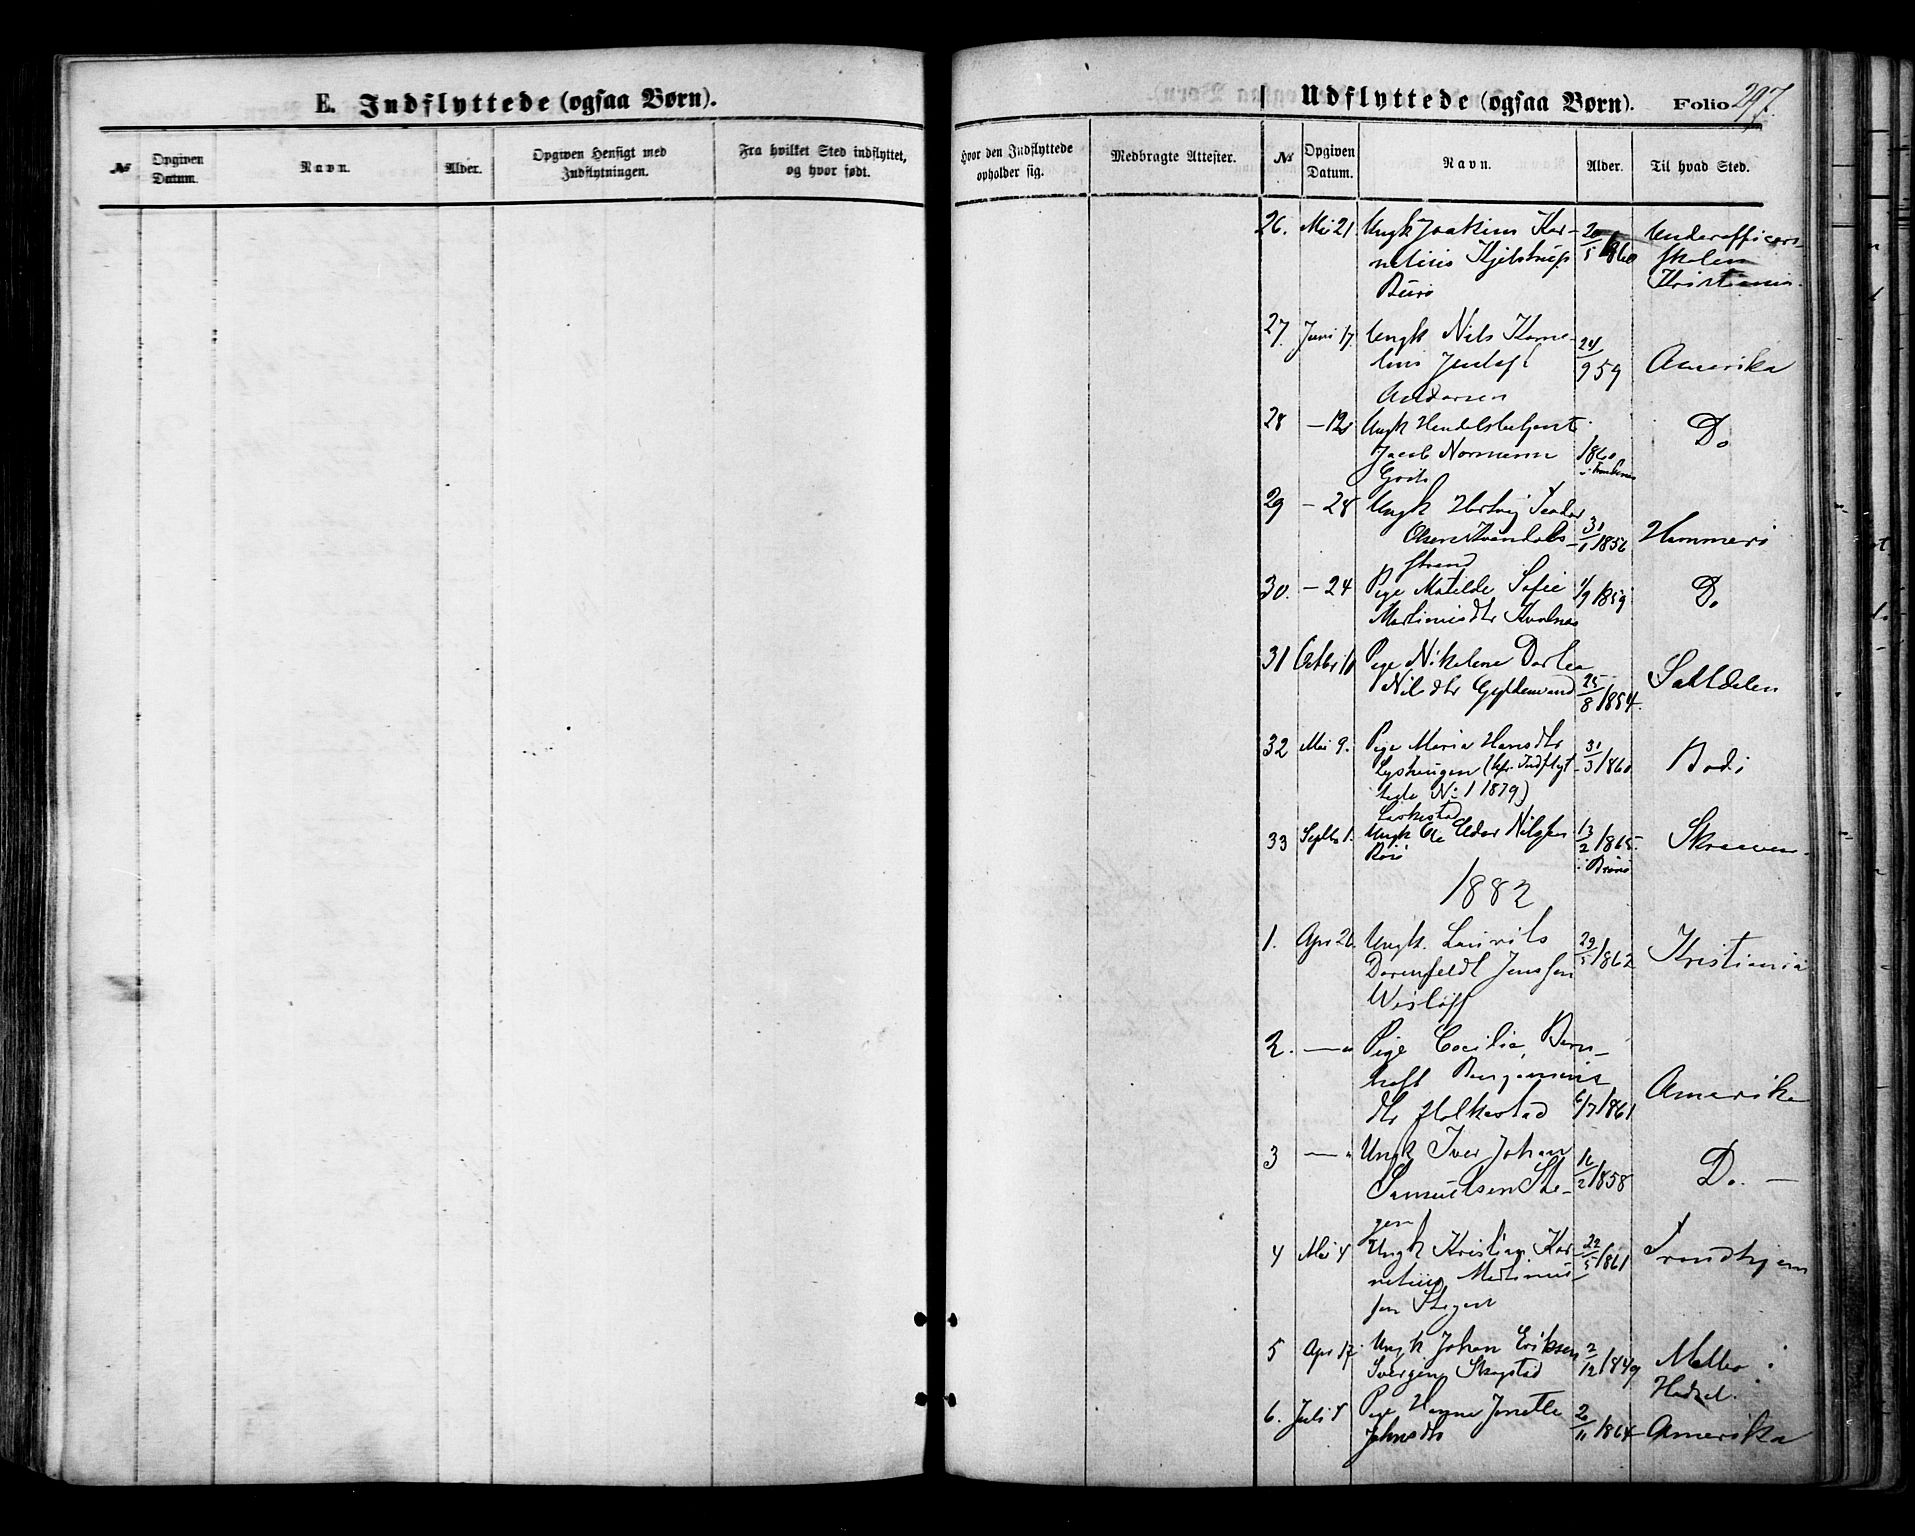 E. Indflyttede (ogsaa Børn).
№ Opgiven Datum. Navn. Alder. Opgiven Hensigt med Indflytningen. Fra hvilket Sted indflyttet, og hvor født.
Udflyttede (ogsaa Børn). Folio 297.
Hvor den Indflyttede opholder sig. Medbragte Attester. № Opgiven Datum. Navn. Alder. Til hvad Sted.
26. Mai 21 Ungk Joakim Kor- 20/5 1860 Underofficers-
nelius Kjelstrup skolen
Kristiania.
27. Juni 17. Ungk Nils Korne-
lius 24/9 59 Amerika
Andersen
28 — 12 Ungk Handelsbetjent Do
Jacob Normann 1860
29 — 28 Ungk Hartvig Teodor
Olsen 31/1 1856 Hammerø
strand
30. — 24 Pige Matilde Sofie 1/9 1859 Do
Martinusdtr Kvalnes
31 Octbr 11 Pige Nikoline Dortea
Nilsdtr Gyldenvand 25/8 1854. Saltdalen
32 Mai 9. Pige Maria Hansdtr 31/3 1860 Bodø
(kfr. Indflyt-
tede No 1 1879)
33 Septbr 1. Ungk Ole Edor 13/2 1865 Skraaven
1882
1. Apr 26. Ungk. Laurits 29/5 1862 Kristiania
Dorenfeldt Jenssen
Wisløff
2. — " Pige Cecilia Bern-
hoft Benjamins Amerika
dtr Holkestad 6/7 1861
3 — " Ungk Iver Johan 16/2 1858 Do. —
Samuelsen Ste-
gen
4 Mai 4 Ungk Kristian Kor- 22/5 1861 Trondhjem
nelius Martinus-
sen Stegen
5 Apr 17. Ungk Johan Eriksen 2/12 1849 Melbo i
Skagstad Hadsel.
6. Juli 8 Pige Hanna Jonette 20/11 1864 Amerika
Johnsdtr